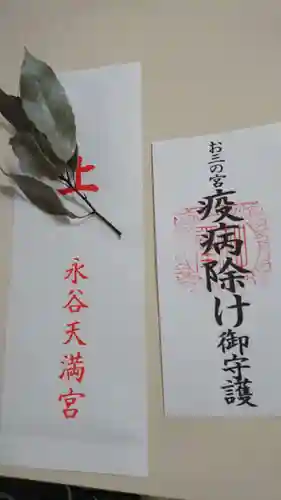 お三の宮
疫病除け御守護
上
永谷天満宮